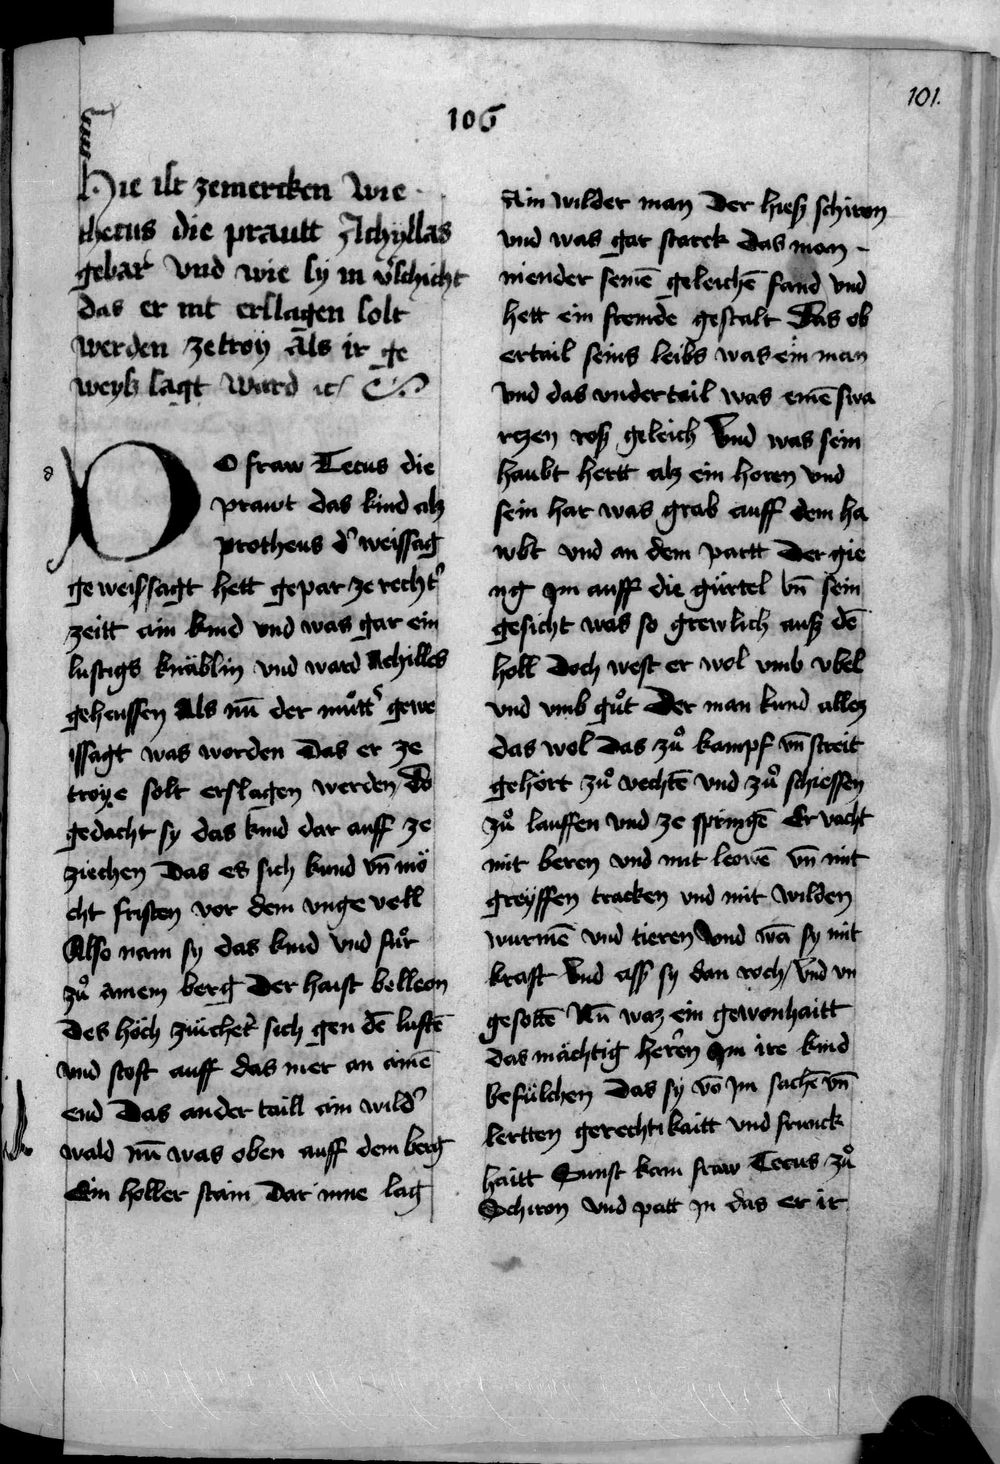 101.
106
Hie ist zemercken wie
thetus die prautt Achyllas
gebar vnd wie sy in v̓schicht
das er nit erslagen solt
werden zetroÿ als ir ge
weyss sagt ward
DO fraw Tetus die
prawt das kind alz
protheus d̓ weissag
geweissagt hett gepar ze recht̓
zeitt ain kind vnd was gar ein
lustigs knäblin vnd ward Achilles
gehaissen Als nu̅ der mu̇tt̓ gewe
issagt was worden Das er ze
troye solt erslagen werden Do
gedacht sy das kind dar auff ze
ziechen Das es sich kund vn̅ mö
cht fristen vor dem vnge vell
Also nam sy das kind vnd fůr
zů ainem berg Der haist belleon
Des höch züchet̓ sich gen de̅ lufte̅
vnd stost auff das mer an aine̅
end Das ander taill aim wild̓
wald nu̅ was oben auff dem berg
Ein holler stain Dar inne lag
Ain wilder man Der hiess schiron
vnd was gar starck das man
niender seine̅ geleiche̅ fand vnd
hett ein fremde gestalt Das ob
ertail seins leibs was ein man
vnd das vndertail was eine̅ swa
rczen ross geleich Vnd was sein
haubt hertt alz ein horen vnd
sein har was grab auff dem ha
wbt vnd an dem partt Der gie
ng Im auff die gürtel vn̅ sein
gesicht was so grewlich auss de̅
holl Doch west er wol vmb vbel
vnd vmb gůt Der man kund allez
das wol Das zů kampf vn̅ streit
gehört zů vechte̅ vnd zů schiessen
zů lauffen vnd ze springe̅ Er vacht
mit beren vnd mit leowe̅ vn̅ mit
greyffen tracken vnd mit wilden
wurme̅ vnd tieren Vnd va̅ sy mit
kraft Vnd ass sy dan roch Vnd vn
gesotte̅ Nu̅ waz ein gewonhaitt
das mächtig her̓en Im ire kind
befülchen Das sy vo̅ Im sache̅ vn̅
lertten gerechtikaitt vnd frumck
haitt Sunst kam fraw Tetus zů
Schiron vnd patt In das er ir